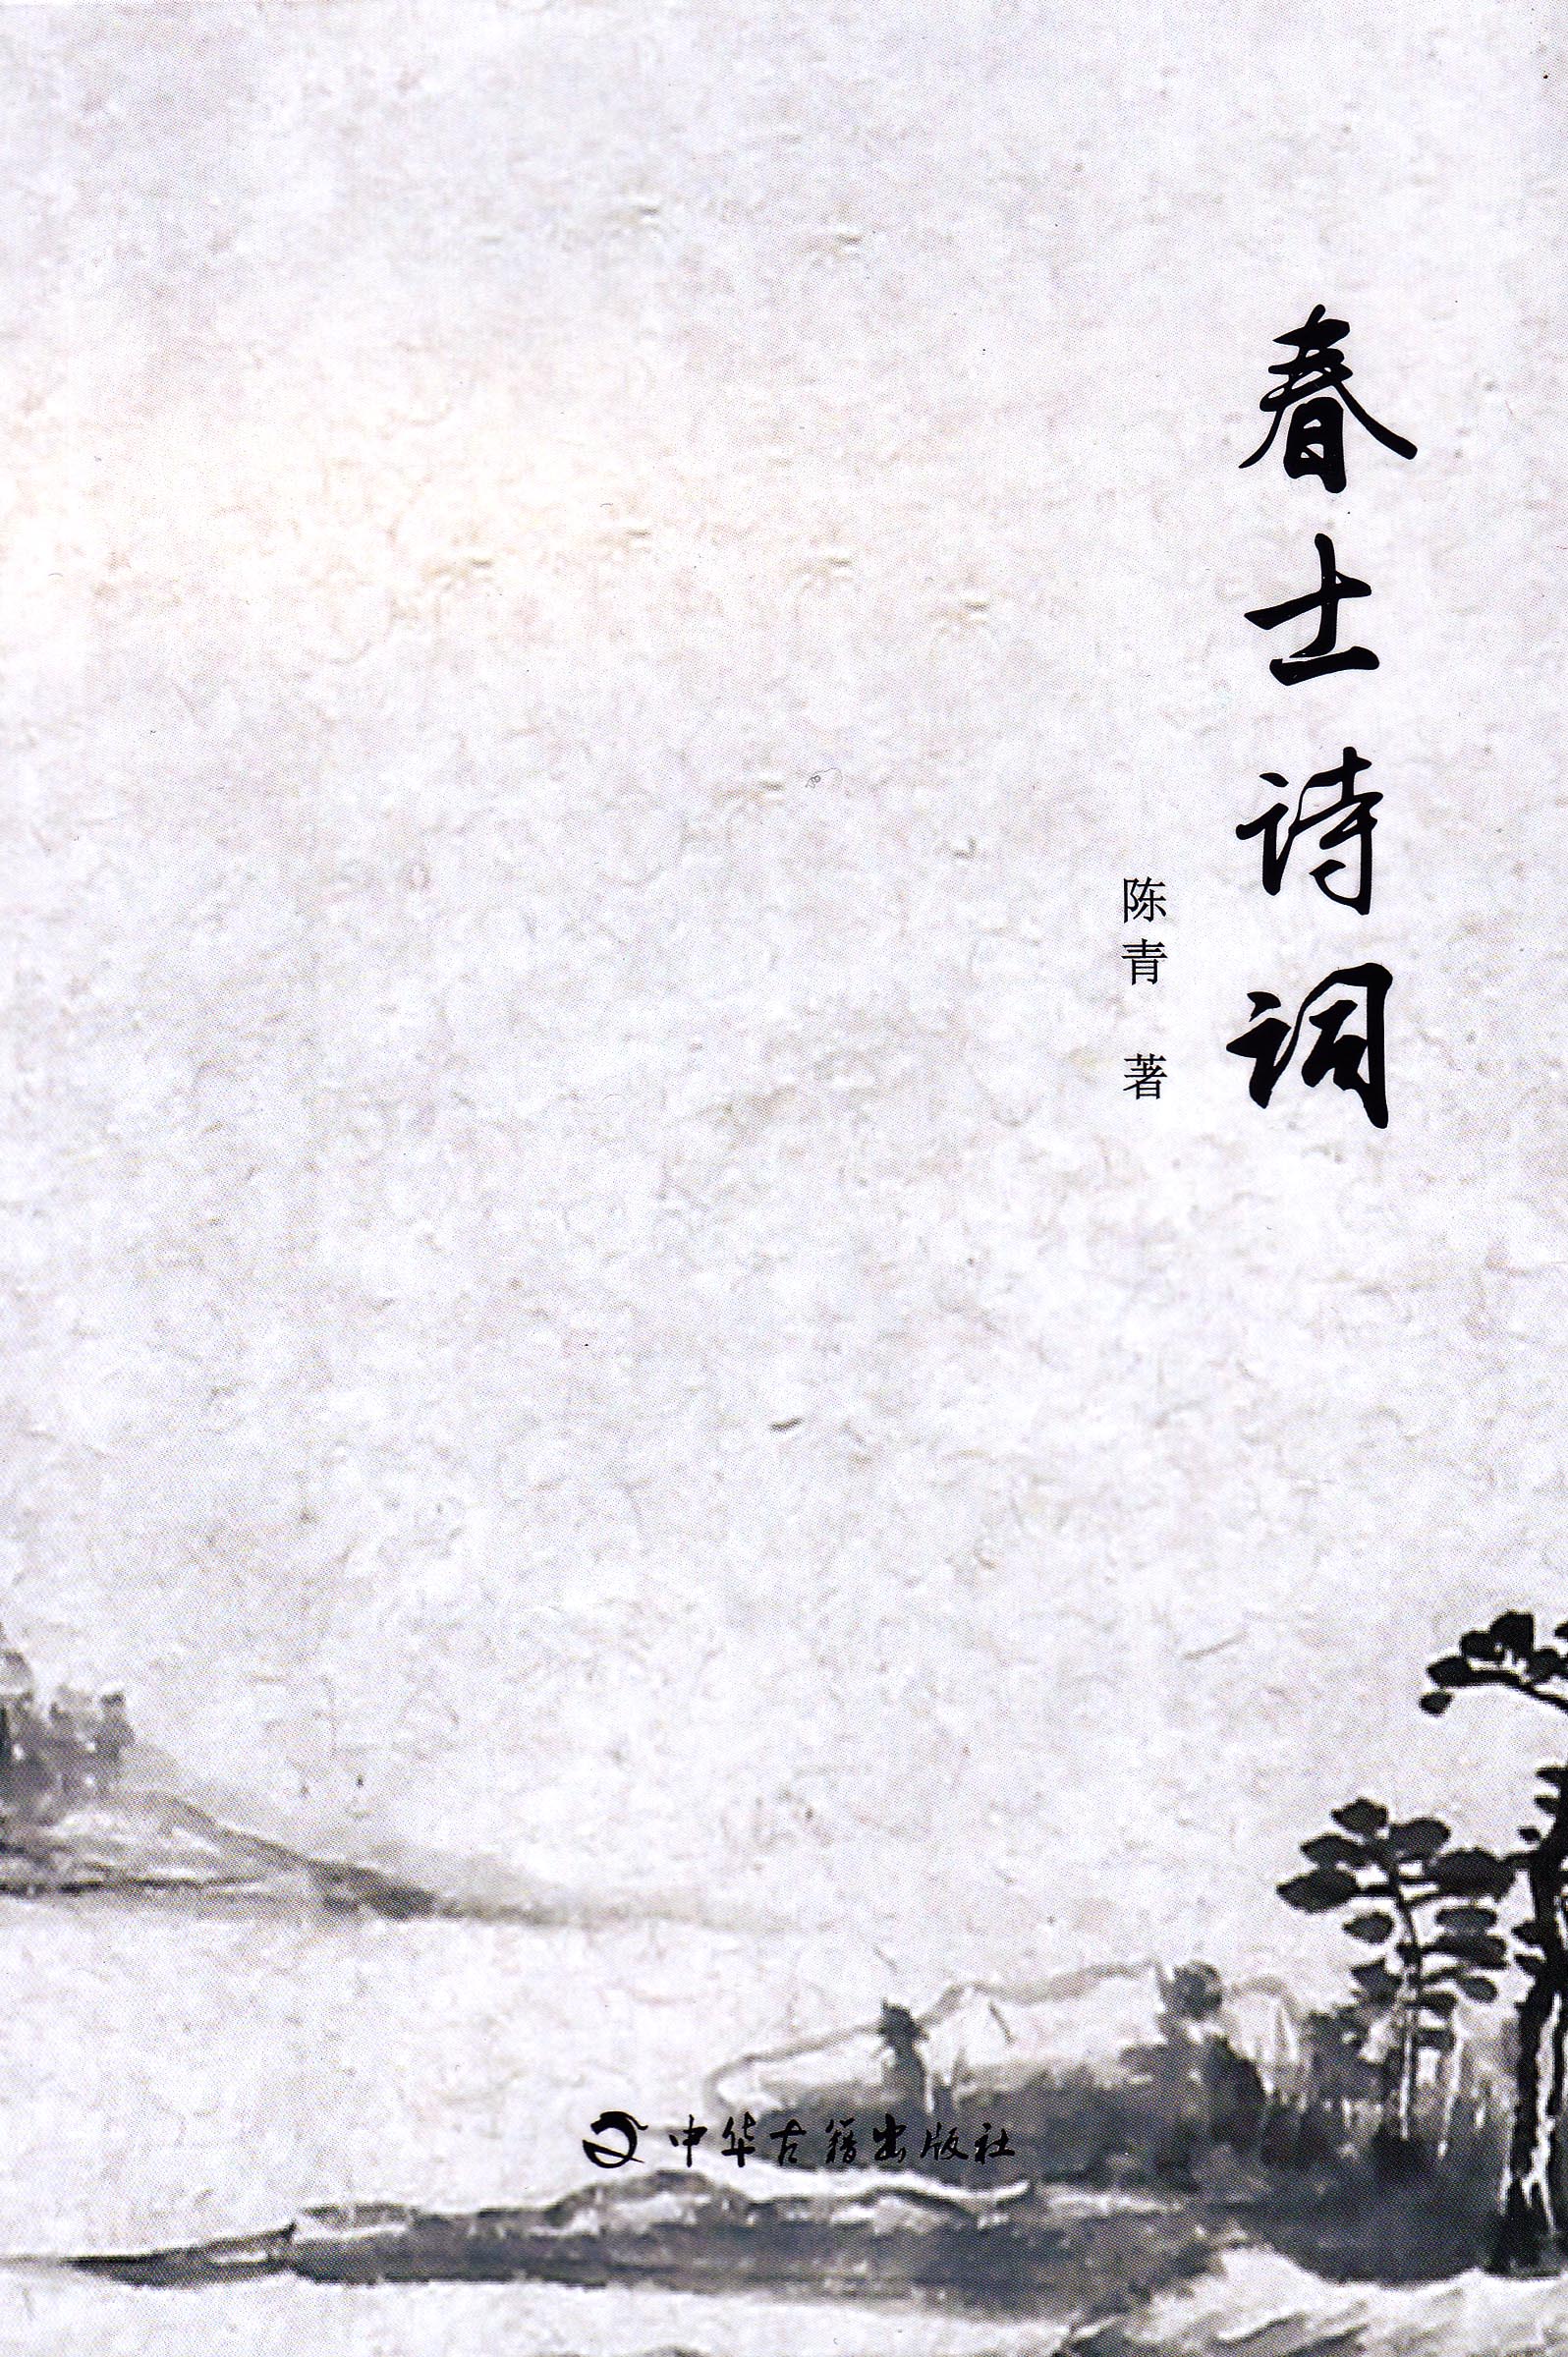 春士诗词
陈青 著
中华古籍出版社